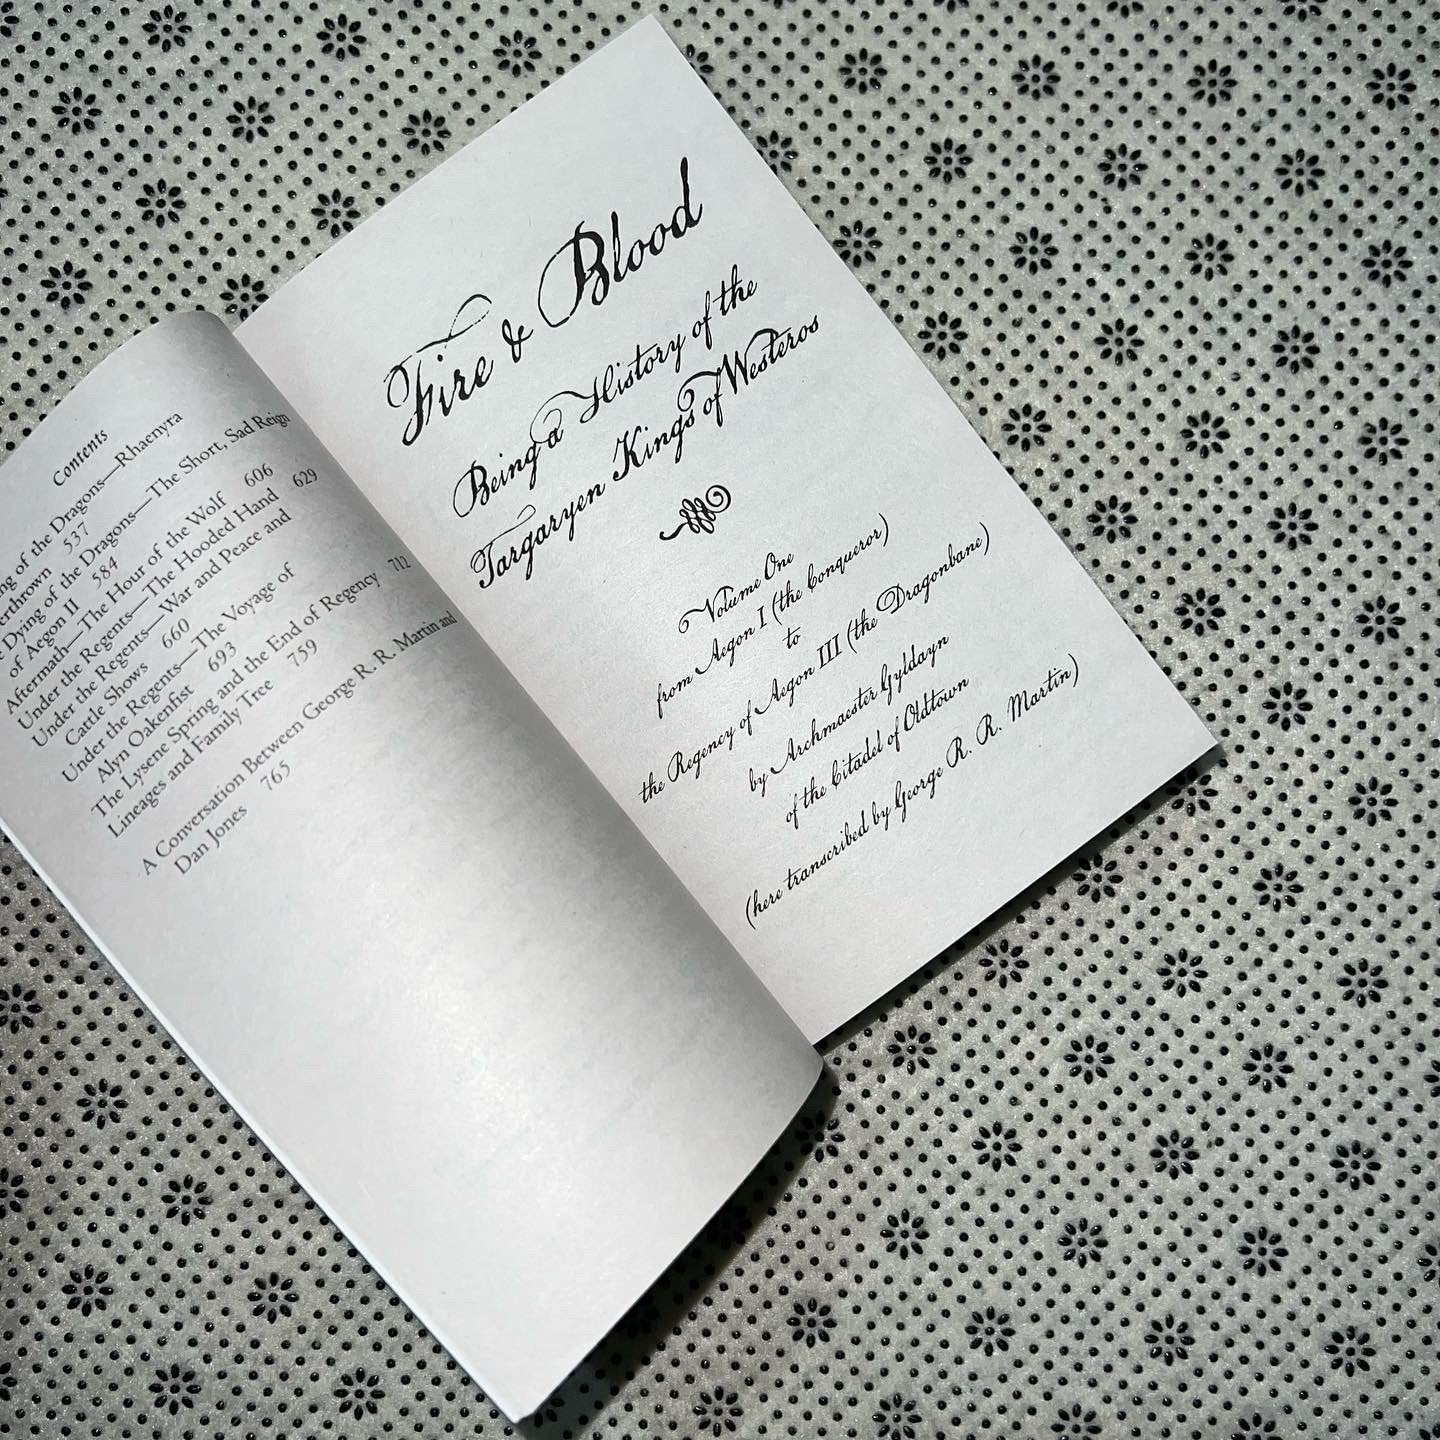 Contents
of the Dragons—Rhaenyra
537
Dying of the Dragons—The Short, Sad Reign
of Aegon II 584
Aftermath—The Hour of the Wolf 606
Under the Regents—The Hooded Hand 629
Under the Regents—War and Peace and
Cattle Shows 660
Under the Regents—The Voyage of
Alyn Oakenfist 693
The Lysene Spring and the End of Regency 712
Lineages and Family Tree 759
A Conversation Between George R. R. Martin and
Dan Jones 765
Fire & Blood
Being a History of the
Targaryen Kings of Westeros
Volume One
from Aegon I (the Conqueror)
to
the Regency of Aegon III (the Dragonbane)
by Archmaester Gyldayn
of the Citadel of Oldtown
(here transcribed by George R. R. Martin)